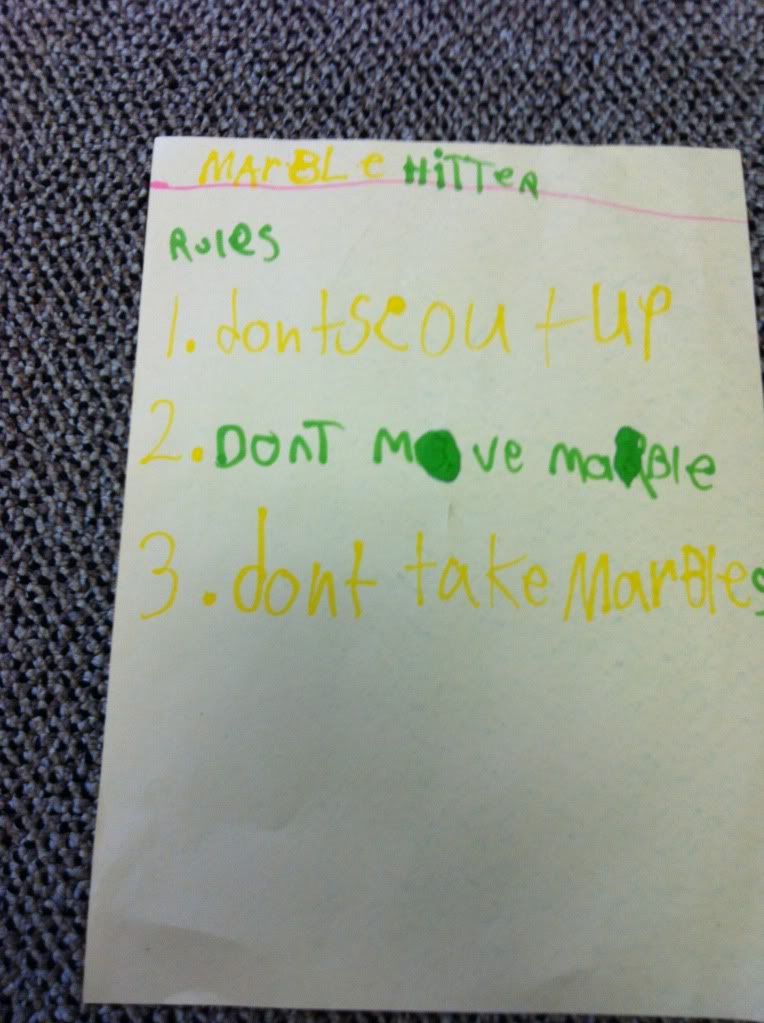 MArBLe HiTTeR
RuleS
1. dont scout up
2. DONT MOVE MaRBle
3. dont take MarBles